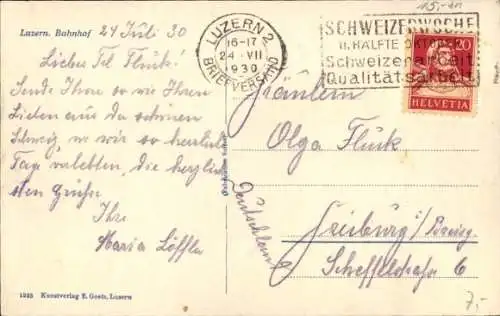 15,-
Luzern. Bahnhof
24 Juli 30
Liebes Frl. Fluck!
Sende Ihnen so wie Ihren
Lieben aus der schönen
Schweiz, wo wir so herrliche
Tage verlebten, die herzlich-
sten Grüße.
Ihre
Maria Löffler
LUZERN 2
16-17
24. VII
1930
BRIEFVERSAND
SCHWEIZERWOCHE
II. HÄLFTE OKTOBER
Schweizerarbeit
Qualitätsarbeit
20
HELVETIA
Fräulein
Olga Fluck
Freiburg i/Breisg.
Scheffelstraße 6
Deutschland
1235 Kunstverlag E. Goetz, Luzern
7,-